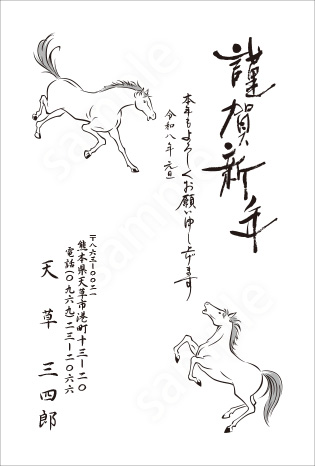 謹賀新年
本年もよろしくお願い申し上げます
令和八年元旦
〒八六三-〇〇二一
熊本県天草市港町十三-二〇
電話(〇九六九)二三-二〇六六
天草 三四郎
sample